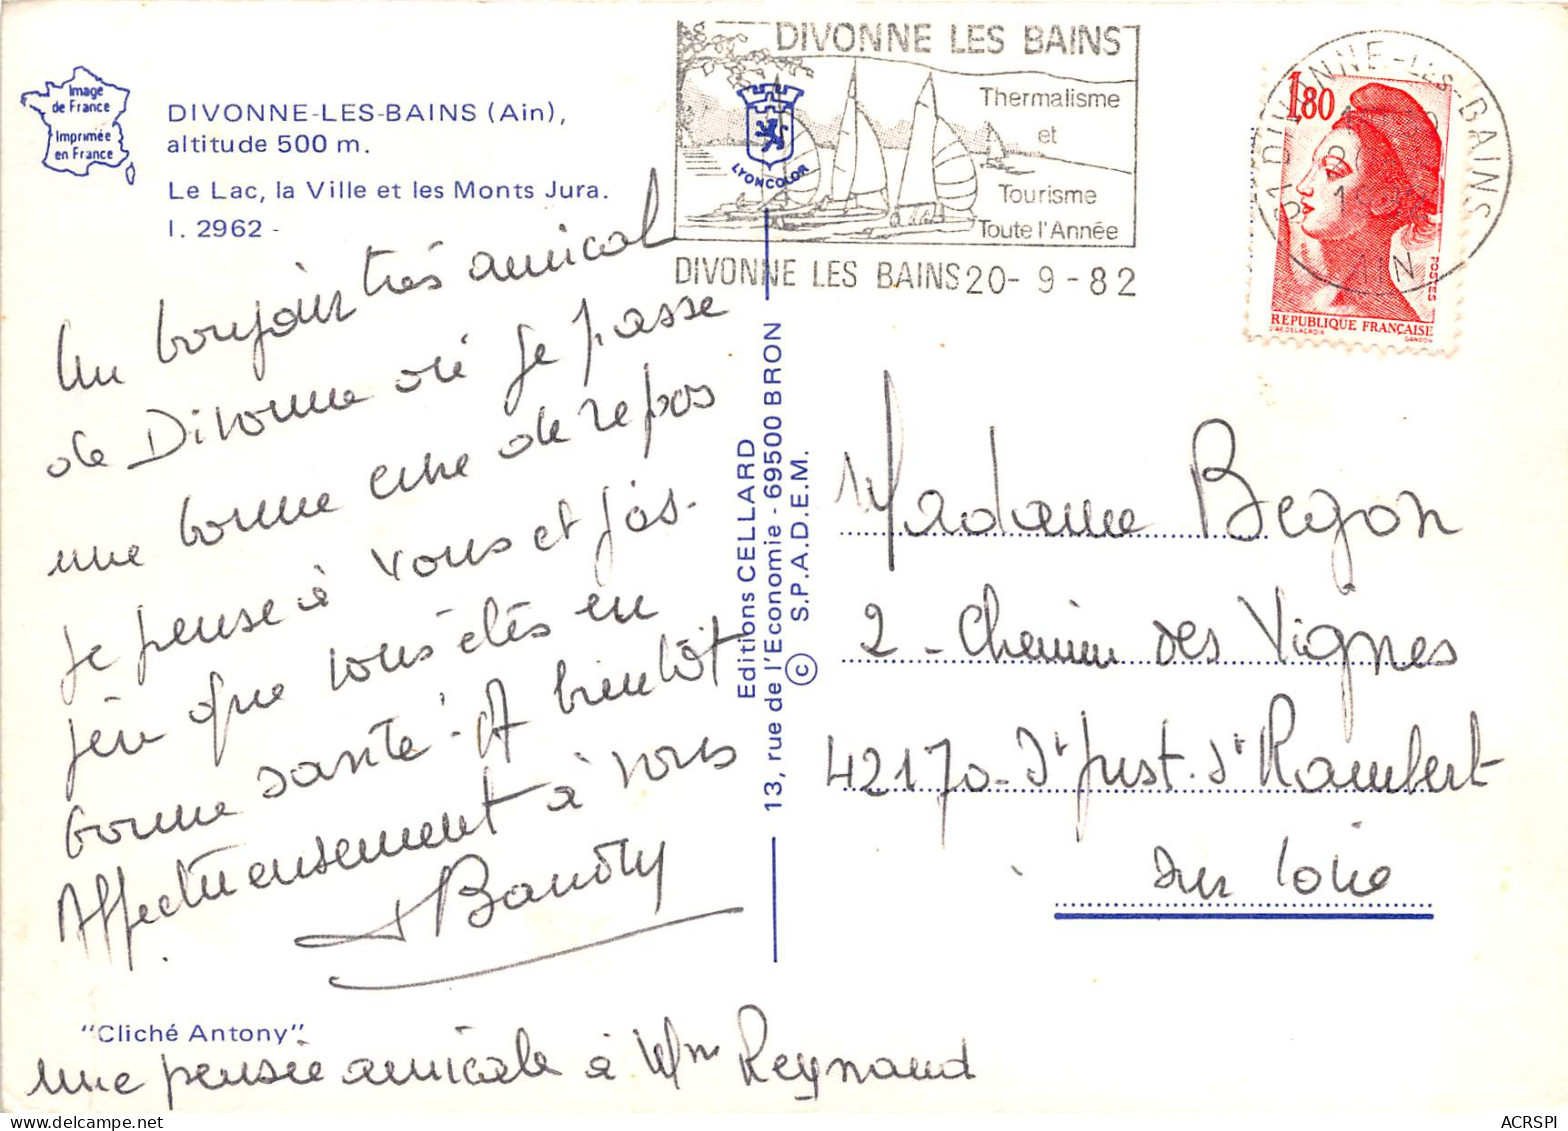 Image
de France
Imprimée
en France
DIVONNE-LES-BAINS (Ain),
altitude 500 m.
Le Lac, la Ville et les Monts Jura.
I. 2962 -
DIVONNE LES BAINS
Thermalisme
et
Tourisme
Toute l'Année
LYONCOLOR
DIVONNE LES BAINS 20-9-82
01 DIVONNE-LES-BAINS
AIN
1,80
POSTES
REPUBLIQUE FRANÇAISE
D'AP. DELACROIX GANDON
Un bonjour très amical
de Divonne où je passe
une bonne cure de repos
je pense à vous et j'es-
père que vous êtes en
bonne santé. A bientôt
Affectueusement à vous
Baudry
"Cliché Antony"
une pensée amicale à Mme Reynaud
Editions CELLARD
13, rue de l'Economie - 69500 BRON
© S.P.A.D.E.M.
Madame Begon
2 - Chemin des Vignes
42170 - St Just. St Rambert
sur Loire
ACRSPI